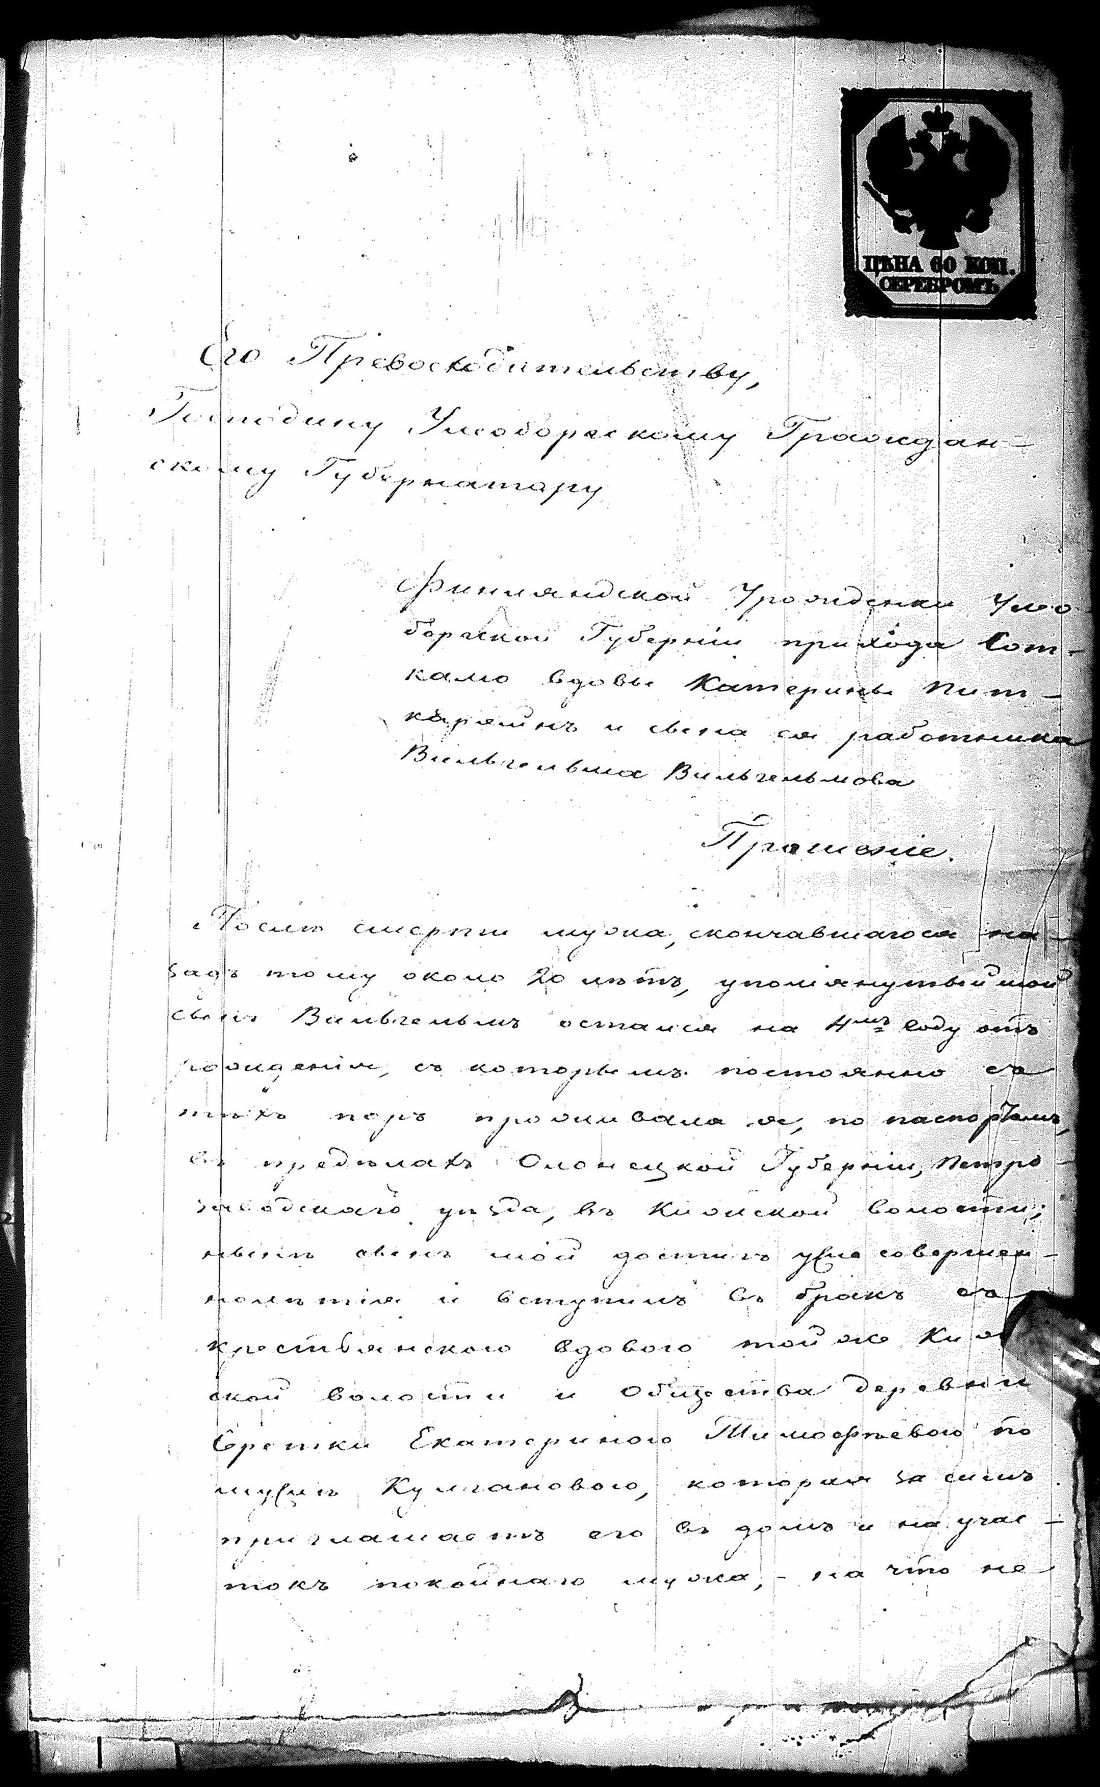 ЦѢНА 60 КОП.
СЕРЕБРОМЪ
Его Превосходительству,
Господину Улеоборгскому Граждан-
скому Губернатору
Финляндской Уроженки Улео
боргской Губерніи прихода Сот-
камо вдовы Катерины Пит-
каряйнъ и сына ея работника
Вильгельма Вильгельмова
Прошеніе.
Послѣ смерти мужа, скончавшагося на-
задъ тому около 20 лѣтъ, упомянутый мой
сынъ Вильгельмъ остался на 4мъ году отъ
рожденія, съ которымъ постоянно съ
тѣхъ поръ проживала я, по паспортамъ,
въ предѣлахъ Олонецкой Губерніи, Петро-
заводскаго уѣзда, въ Кижской волости;
нынѣ сынъ мой достигъ уже совершен-
нолѣтія и вступилъ въ бракъ съ
крестьянскою вдовою той же Киж
ской волости и Общества деревни
Сретки Екатериною Тимофѣевою по
мужѣ Кулгановою, которая за симъ
приглашаетъ его въ домъ и на учас-
токъ покойнаго мужа, - на что не